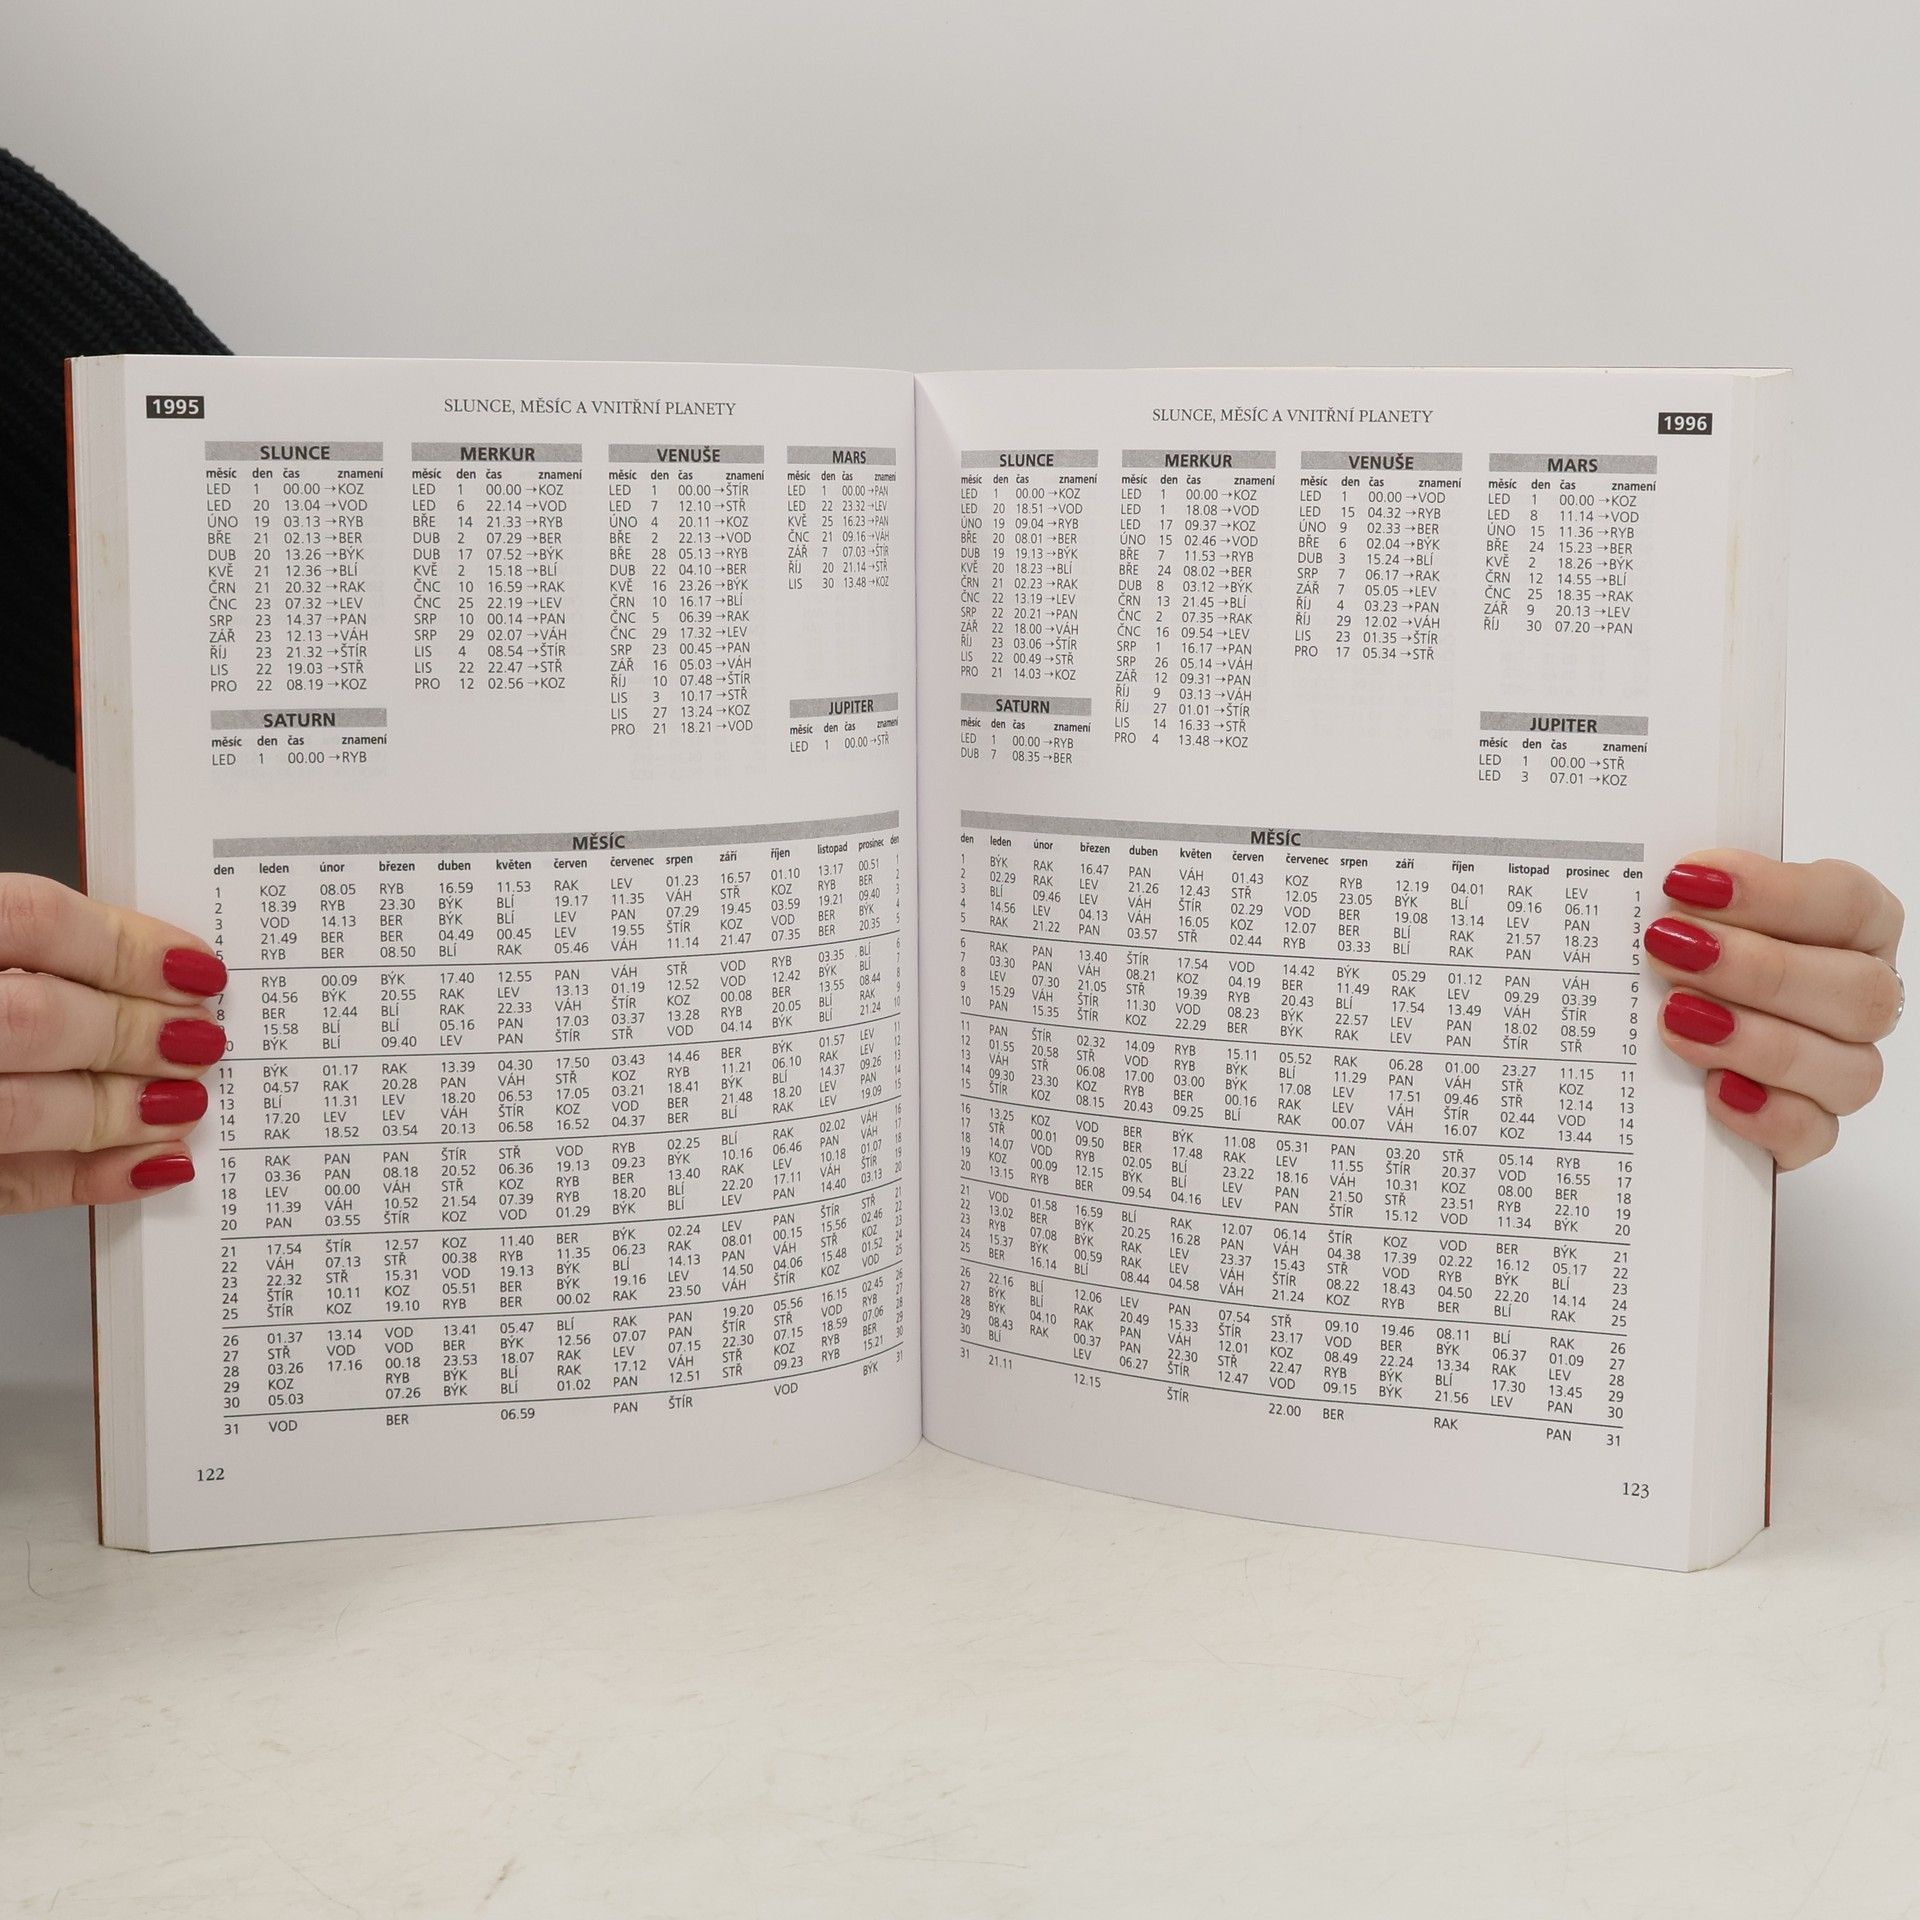 1995
SLUNCE, MĚSÍC A VNITŘNÍ PLANETY
SLUNCE
měsíc den čas znamení
LED 1 00.00 →KOZ
LED 20 13.04 →VOD
ÚNO 19 03.13 →RYB
BŘE 21 02.13 →BER
DUB 20 13.26 →BÝK
KVĚ 21 12.36 →BLÍ
ČRN 21 20.32 →RAK
ČNC 23 07.32 →LEV
SRP 23 14.37 →PAN
ZÁŘ 23 12.13 →VÁH
ŘÍJ 23 21.32 →ŠTÍR
LIS 22 19.03 →STŘ
PRO 22 08.19 →KOZ
MERKUR
měsíc den čas znamení
LED 1 00.00 →KOZ
LED 6 22.14 →VOD
BŘE 14 21.33 →RYB
DUB 2 07.29 →BER
DUB 17 07.52 →BÝK
KVĚ 2 15.18 →BLÍ
ČNC 10 16.59 →RAK
ČNC 25 22.19 →LEV
SRP 10 00.14 →PAN
SRP 29 02.07 →VÁH
LIS 4 08.54 →ŠTÍR
LIS 22 22.47 →STŘ
PRO 12 02.56 →KOZ
VENUŠE
měsíc den čas znamení
LED 1 00.00 →ŠTÍR
LED 7 12.10 →STŘ
ÚNO 4 20.11 →KOZ
BŘE 2 22.13 →VOD
BŘE 28 05.13 →RYB
DUB 22 04.10 →BER
KVĚ 16 23.26 →BÝK
ČRN 10 16.17 →BLÍ
ČNC 5 06.39 →RAK
ČNC 29 17.32 →LEV
SRP 23 00.45 →PAN
ZÁŘ 16 05.03 →VÁH
ŘÍJ 10 07.48 →ŠTÍR
LIS 3 10.17 →STŘ
LIS 27 13.24 →KOZ
PRO 21 18.21 →VOD
MARS
měsíc den čas znamení
LED 1 00.00 →PAN
LED 22 23.32 →LEV
KVĚ 25 16.23 →PAN
ČNC 21 09.16 →VÁH
ZÁŘ 7 07.03 →ŠTÍR
ŘÍJ 20 21.14 →STŘ
LIS 30 13.48 →KOZ
SATURN
měsíc den čas znamení
LED 1 00.00 →RYB
JUPITER
měsíc den čas znamení
LED 1 00.00 →STŘ
MĚSÍC
den leden únor březen duben květen červen červenec srpen září říjen listopad prosinec den
1 KOZ 08.05 RYB 16.59 11.53 RAK LEV 01.23 16.57 01.10 13.17 00.51 1
2 18.39 RYB 23.30 BÝK BLÍ 19.17 11.35 VÁH STŘ KOZ RYB BER 2
3 VOD 14.13 BER BÝK BLÍ LEV PAN 07.29 19.45 03.59 19.21 09.40 3
4 21.49 BER BER 04.49 00.45 LEV 19.55 ŠTÍR KOZ VOD BER BÝK 4
5 RYB BER 08.50 BLÍ RAK 05.46 VÁH 11.14 21.47 07.35 BER 20.35 5
RYB 00.09 BÝK 17.40 12.55 PAN VÁH STŘ VOD RYB 03.35 BLÍ 6
7 04.56 BÝK 20.55 RAK LEV 13.13 01.19 12.52 VOD 12.42 BÝK BLÍ 7
8 BER 12.44 BLÍ RAK 22.33 VÁH ŠTÍR KOZ 00.08 BER 13.55 08.44 8
15.58 BLÍ BLÍ 05.16 PAN 17.03 03.37 13.28 RYB 20.05 BLÍ RAK 9
0 BÝK BLÍ 09.40 LEV PAN ŠTÍR STŘ VOD 04.14 BÝK BLÍ 21.24 10
11 BÝK 01.17 RAK 13.39 04.30 17.50 03.43 14.46 BER BÝK 01.57 LEV 11
12 04.57 RAK 20.28 PAN VÁH STŘ KOZ RYB 11.21 06.10 RAK LEV 12
13 BLÍ 11.31 LEV 18.20 06.53 17.05 03.21 18.41 BÝK BLÍ 14.37 09.26 13
14 17.20 LEV LEV VÁH ŠTÍR KOZ VOD BER 21.48 18.20 LEV PAN 14
15 RAK 18.52 03.54 20.13 06.58 16.52 04.37 BER BLÍ RAK LEV 19.09 15
16 RAK PAN PAN ŠTÍR STŘ VOD RYB 02.25 BLÍ RAK 02.02 VÁH 16
17 03.36 PAN 08.18 20.52 06.36 19.13 09.23 BÝK 10.16 06.46 PAN VÁH 17
18 LEV 00.00 VÁH STŘ KOZ RYB BER 13.40 RAK LEV 10.18 01.07 18
19 11.39 VÁH 10.52 21.54 07.39 RYB 18.20 BLÍ 22.20 17.11 VÁH ŠTÍR 19
20 PAN 03.55 ŠTÍR KOZ VOD 01.29 BÝK BLÍ LEV PAN 14.40 03.13 20
21 17.54 ŠTÍR 12.57 KOZ 11.40 BER BÝK 02.24 LEV PAN ŠTÍR STŘ 21
22 VÁH 07.13 STŘ 00.38 RYB 11.35 06.23 RAK 08.01 00.15 15.56 02.46 22
23 22.32 STŘ 15.31 VOD 19.13 BÝK BLÍ 14.13 PAN VÁH STŘ KOZ 23
24 ŠTÍR 10.11 KOZ 05.51 BER BÝK 19.16 LEV 14.50 04.06 15.48 01.52 24
25 ŠTÍR KOZ 19.10 RYB BER 00.02 RAK 23.50 VÁH ŠTÍR KOZ VOD 25
26 01.37 13.14 VOD 13.41 05.47 BLÍ RAK PAN 19.20 05.56 16.15 02.45 26
27 STŘ VOD VOD BER BÝK 12.56 07.07 PAN ŠTÍR STŘ VOD RYB 27
28 03.26 17.16 00.18 23.53 18.07 RAK LEV 07.15 22.30 07.15 18.59 07.06 28
29 KOZ RYB BÝK BLÍ RAK 17.12 VÁH STŘ KOZ RYB BER 29
30 05.03 07.26 BÝK BLÍ 01.02 PAN 12.51 STŘ 09.23 RYB 15.21 30
31 VOD BER 06.59 PAN ŠTÍR VOD BÝK 31
122
SLUNCE, MĚSÍC A VNITŘNÍ PLANETY
1996
SLUNCE
měsíc den čas znamení
LED 1 00.00 →KOZ
LED 20 18.51 →VOD
ÚNO 19 09.04 →RYB
BŘE 20 08.01 →BER
DUB 19 19.13 →BÝK
KVĚ 20 18.23 →BLÍ
ČRN 21 02.23 →RAK
ČNC 22 13.19 →LEV
SRP 22 20.21 →PAN
ZÁŘ 22 18.00 →VÁH
ŘÍJ 23 03.06 →ŠTÍR
LIS 22 00.49 →STŘ
PRO 21 14.03 →KOZ
MERKUR
měsíc den čas znamení
LED 1 00.00 →KOZ
LED 1 18.08 →VOD
LED 17 09.37 →KOZ
ÚNO 15 02.46 →VOD
BŘE 7 11.53 →RYB
BŘE 24 08.02 →BER
DUB 8 03.12 →BÝK
ČRN 13 21.45 →BLÍ
ČNC 2 07.35 →RAK
ČNC 16 09.54 →LEV
SRP 1 16.17 →PAN
SRP 26 05.14 →VÁH
ZÁŘ 12 09.31 →PAN
ŘÍJ 9 03.13 →VÁH
ŘÍJ 27 01.01 →ŠTÍR
LIS 14 16.33 →STŘ
PRO 4 13.48 →KOZ
VENUŠE
měsíc den čas znamení
LED 1 00.00 →VOD
LED 15 04.32 →RYB
ÚNO 9 02.33 →BER
BŘE 6 02.04 →BÝK
DUB 3 15.24 →BLÍ
SRP 7 06.17 →RAK
ZÁŘ 7 05.05 →LEV
ŘÍJ 4 03.23 →PAN
ŘÍJ 29 12.02 →VÁH
LIS 23 01.35 →ŠTÍR
PRO 17 05.34 →STŘ
MARS
měsíc den čas znamení
LED 1 00.00 →KOZ
LED 8 11.14 →VOD
ÚNO 15 11.36 →RYB
BŘE 24 15.23 →BER
KVĚ 2 18.26 →BÝK
ČRN 12 14.55 →BLÍ
ČNC 25 18.35 →RAK
ZÁŘ 9 20.13 →LEV
ŘÍJ 30 07.20 →PAN
SATURN
měsíc den čas znamení
LED 1 00.00 →RYB
DUB 7 08.35 →BER
JUPITER
měsíc den čas znamení
LED 1 00.00 →STŘ
LED 3 07.01 →KOZ
MĚSÍC
den leden únor březen duben květen červen červenec srpen září říjen listopad prosinec den
1 BÝK RAK 16.47 PAN VÁH 01.43 KOZ RYB 12.19 04.01 RAK LEV 1
2 02.29 RAK LEV 21.26 12.43 STŘ 12.05 23.05 BÝK BLÍ 09.16 06.11 2
3 BLÍ 09.46 LEV VÁH ŠTÍR 02.29 VOD BER 19.08 13.14 LEV PAN 3
4 14.56 LEV 04.13 VÁH 16.05 KOZ 12.07 BER BLÍ RAK 21.57 18.23 4
5 RAK 21.22 PAN 03.57 STŘ 02.44 RYB 03.33 BLÍ RAK PAN VÁH 5
6 RAK PAN 13.40 ŠTÍR 17.54 VOD 14.42 BÝK 05.29 01.12 PAN VÁH 6
7 03.30 PAN VÁH 08.21 KOZ 04.19 BER 11.49 RAK LEV 09.29 03.39 7
8 LEV 07.30 21.05 STŘ 19.39 RYB 20.43 BLÍ 17.54 13.49 VÁH ŠTÍR 8
9 15.29 VÁH ŠTÍR 11.30 VOD 08.23 BÝK 22.57 LEV PAN 18.02 08.59 9
10 PAN 15.35 ŠTÍR KOZ 22.29 BER BÝK RAK LEV PAN ŠTÍR STŘ 10
11 PAN ŠTÍR 02.32 14.09 RYB 15.11 05.52 RAK 06.28 01.00 23.27 11.15 11
12 01.55 20.58 STŘ VOD RYB BÝK BLÍ 11.29 PAN VÁH STŘ KOZ 12
13 VÁH STŘ 06.08 17.00 03.00 BÝK 17.08 LEV 17.51 09.46 STŘ 12.14 13
14 09.30 23.30 KOZ RYB BER 00.16 RAK LEV VÁH ŠTÍR 02.44 VOD 14
15 ŠTÍR KOZ 08.15 20.43 09.25 BLÍ RAK 00.07 VÁH 16.07 KOZ 13.44 15
16 13.25 KOZ VOD BER BÝK 11.08 05.31 PAN 03.20 STŘ 05.14 RYB 16
17 STŘ 00.01 09.50 BER 17.48 RAK LEV 11.55 ŠTÍR 20.37 VOD 16.55 17
18 14.07 VOD RYB 02.05 BLÍ 23.22 18.16 VÁH 10.31 KOZ 08.00 BER 18
19 KOZ 00.09 12.15 BÝK BLÍ LEV PAN 21.50 STŘ 23.51 RYB 22.10 19
20 13.15 RYB BER 09.54 04.16 LEV PAN ŠTÍR 15.12 VOD 11.34 BÝK 20
21 VOD 01.58 16.59 BLÍ RAK 12.07 06.14 ŠTÍR KOZ VOD BER BÝK 21
22 13.02 BER BÝK 20.25 16.28 PAN VÁH 04.38 17.39 02.22 16.12 05.17 22
23 RYB 07.08 BÝK RAK LEV 23.37 15.43 STŘ VOD RYB BÝK BLÍ 23
24 15.37 BÝK 00.59 RAK LEV VÁH ŠTÍR 08.22 18.43 04.50 22.20 14.14 24
25 BER 16.14 BLÍ 08.44 04.58 VÁH 21.24 KOZ RYB BER BLÍ RAK 25
26 22.16 BLÍ 12.06 LEV PAN 07.54 STŘ 09.10 19.46 08.11 BLÍ RAK 26
27 BÝK BLÍ RAK 20.49 15.33 ŠTÍR 23.17 VOD BER BÝK 06.37 01.09 27
28 BÝK 04.10 RAK PAN VÁH 12.01 KOZ 08.49 22.24 13.34 RAK LEV 28
29 08.43 RAK 00.37 PAN 22.30 STŘ 22.47 RYB BÝK BLÍ 17.30 13.45 29
30 BLÍ LEV 06.27 ŠTÍR 12.47 VOD 09.15 BÝK 21.56 LEV PAN 30
31 21.11 12.15 ŠTÍR 22.00 BER RAK PAN 31
123